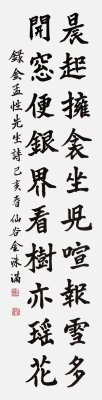 晨起擁衾坐見喧報雪多
開窓便銀界看樹亦瑤花
錄金孟性先生詩 己亥春 仙谷 金珠滿